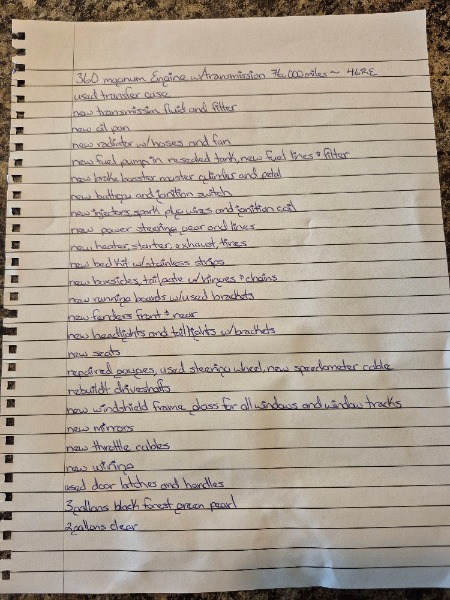 360 magnum Engine w/transmission 76,000 miles ~ 46RE
used transfer case
new transmission fluid and filter
new oil pan
new radiator w/hoses and fan
new fuel pump in resealed tank, new fuel lines & filter
new brake booster, master cylinder and pedal
new battery and ignition switch
new injectors, spark plug wires and ignition coil
new power steering gear and lines
new heater, starter, exhaust, tires
new bed kit w/stainless strips
new boxsides, tailgate w/hinges & chains
new running boards w/used brackets
new fenders front & rear
new headlights and taillights w/brackets
new seats
repaired gauges, used steering wheel, new speedometer cable
rebuilt driveshafts
new windshield frame, glass for all windows and window tracks
new mirrors
new throttle cables
new wiring
used door latches and handles
3 gallons black forest green pearl
2 gallons clear